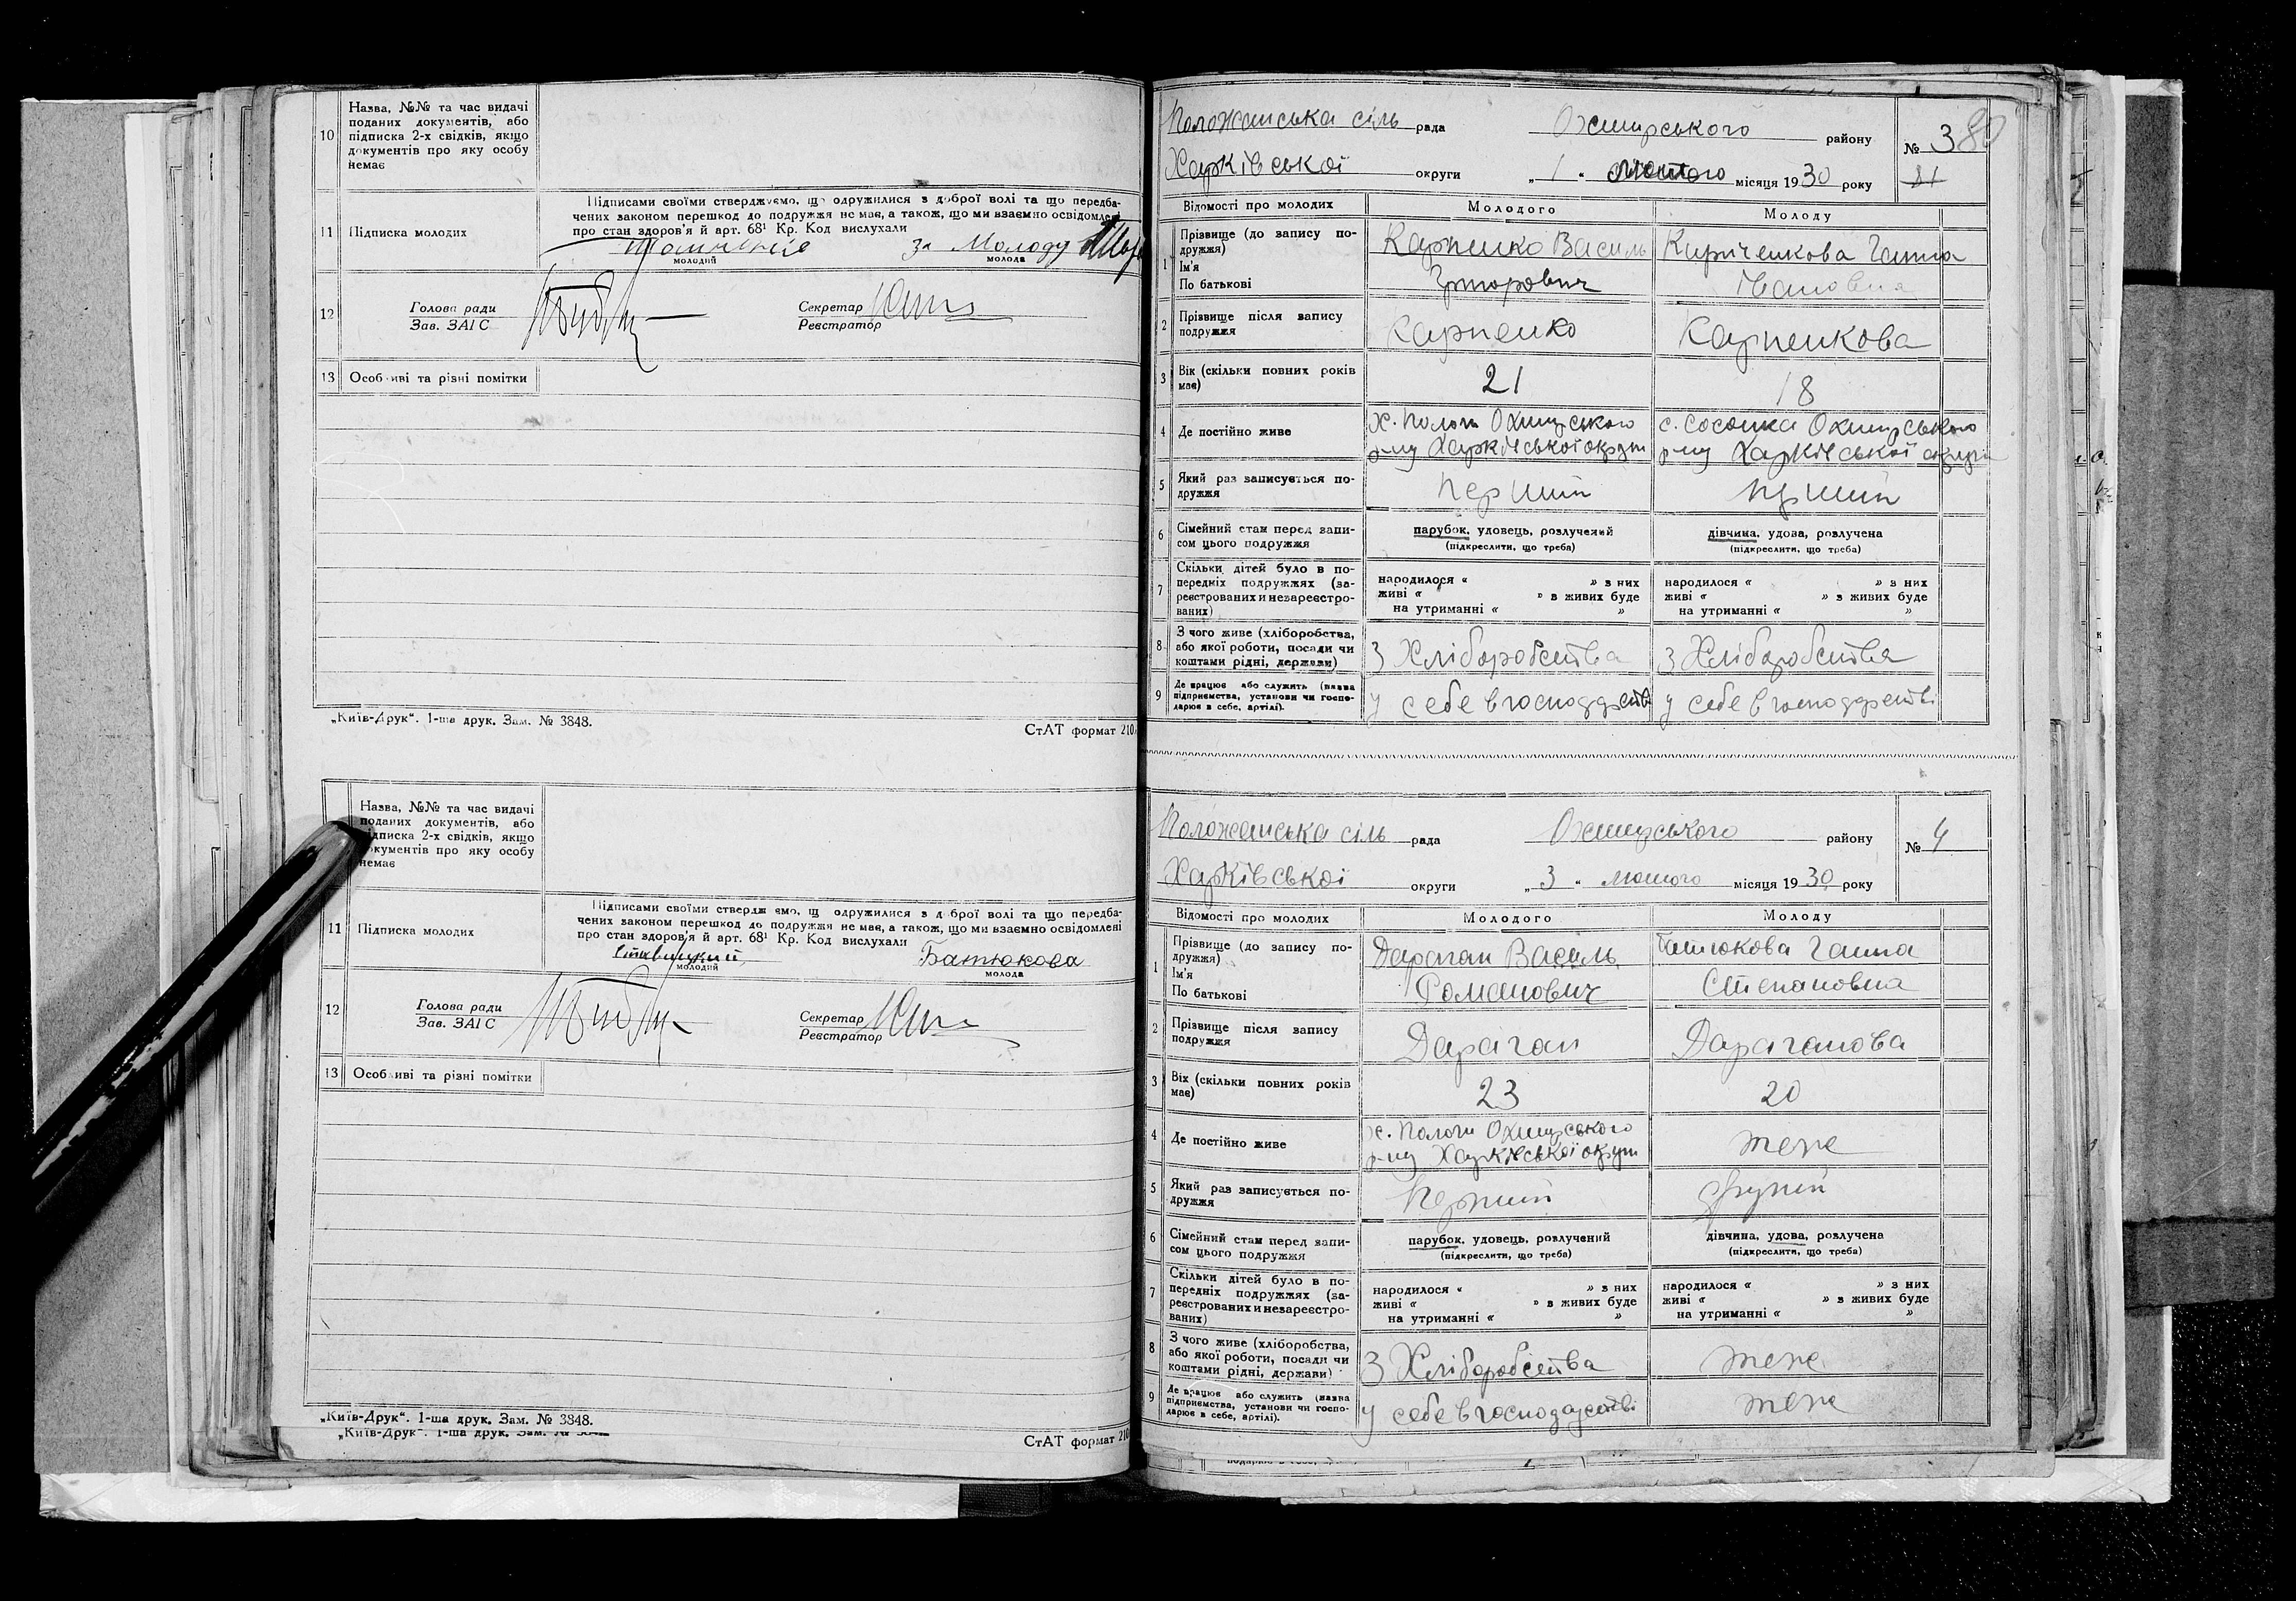 10
Назва, №№ та час видачі
поданих документів, або
підписка 2-х свідків, якщо
документів про яку особу
немає
11
Підписка молодих
Підписами своїми стверджуємо, що одружилися з доброї волі та що передба-
чених законом перешкод до подружжя не має, а також, що ми взаємно освідомлені
про стан здоров'я й арт. 68¹ Кр. Код вислухали
за Молоду
молодий
молода
12
Голова ради
Зав. ЗАГС
Секретар
Реєстратор
13
Особливі та різні помітки
„Київ-Друк“. 1-ша друк. Зам. № 3848.
СтАТ формат 210
Назва, №№ та час видачі
поданих документів, або
підписка 2-х свідків, якщо
документів про яку особу
немає
11
Підписка молодих
Підписами своїми стверджуємо, що одружилися з доброї волі та що передба-
чених законом перешкод до подружжя не має, а також, що ми взаємно освідомлені
про стан здоров'я й арт. 68¹ Кр. Код вислухали
Ставицкий
Батюкова
молодий
молода
12
Голова ради
Зав. ЗАГС
Секретар
Реєстратор
13
Особливі та різні помітки
„Київ-Друк“. 1-ша друк. Зам. № 3848.
„Київ-Друк“. 1-ша друк. Зам. №
СтАТ формат 210
Положанська сіль рада Охтирського району № 3 80
Харківської округи „ 1 “ лютого місяця 1930 року 81
Відомості про молодих
Молодого
Молоду
1
Прізвище (до запису по-
дружжя)
Ім'я
По батькові
Карпенко Василь
Григорович
Кириченкова Ганна
Івановна
2
Прізвище після запису
подружжя
Карпенко
Карпенкова
3
Вік (скільки повних років
має)
21
18
4
Де постійно живе
х. Пологи Охтирського
р-ну Харківської округи
с. Сосонка Охтирського
р-ну Харківської округи
5
Який раз записується по-
дружжя
перший
перший
6
Сімейний стан перед запи-
сом цього подружжя
парубок, удовець, розлучений
(підкреслити, що треба)
дівчина, удова, розлучена
(підкреслити, що треба)
7
Скільки дітей було в по-
передніх подружжях (за-
реєстрованих и незареєстро-
ваних)
народилося « » з них
живі « » з живих буде
на утриманні « »
народилося « » з них
живі « » з живих буде
на утриманні « »
8
З чого живе (хліборобства,
або якої роботи, посади чи
коштами рідні, держави)
З Хліборобства
З Хліборобства
9
Де працює або служить (назва
підприємства, установи чи госпо-
дарює в себе, артілі).
у себе в господарстві
у себе в господарстві
Положанська сіль рада Охтирського району № 4
Харківської округи „ 3 “ лютого місяця 1930 року
Відомості про молодих
Молодого
Молоду
1
Прізвище (до запису по-
дружжя)
Ім'я
По батькові
Дараган Василь
Романович
Батюкова Ганна
Степановна
2
Прізвище після запису
подружжя
Дараган
Дараганова
3
Вік (скільки повних років
має)
23
20
4
Де постійно живе
х. Пологи Охтирського
р-ну Харківської округи
теж
5
Який раз записується по-
дружжя
Перший
другий
6
Сімейний стан перед запи-
сом цього подружжя
парубок, удовець, розлучений
(підкреслити, що треба)
дівчина, удова, розлучена
(підкреслити, що треба)
7
Скільки дітей було в по-
передніх подружжях (за-
реєстрованих и незареєстро-
ваних)
народилося « » з них
живі « » з живих буде
на утриманні « »
народилося « » з них
живі « » з живих буде
на утриманні « »
8
З чого живе (хліборобства,
або якої роботи, посади чи
коштами рідні, держави)
З Хліборобства
теж
9
Де працює або служить (назва
підприємства, установи чи госпо-
дарює в себе, артілі).
у себе в господарстві
теж